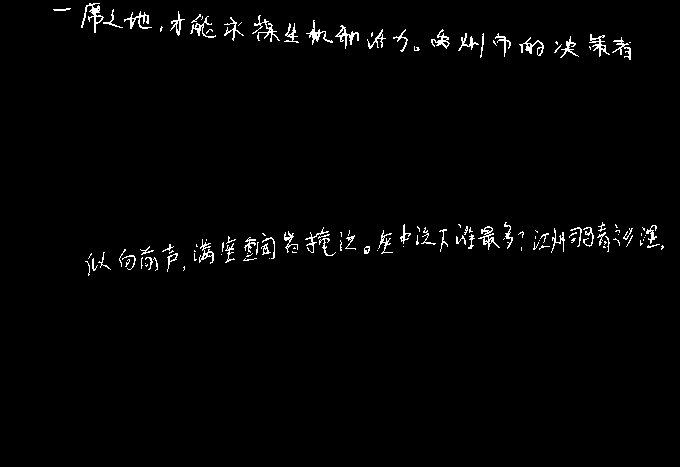 一席之地,才能永葆生机和活力。禹州市的决策者
似向前声,满座重闻皆掩泣。座中泣下谁最多?江州司马青衫湿,